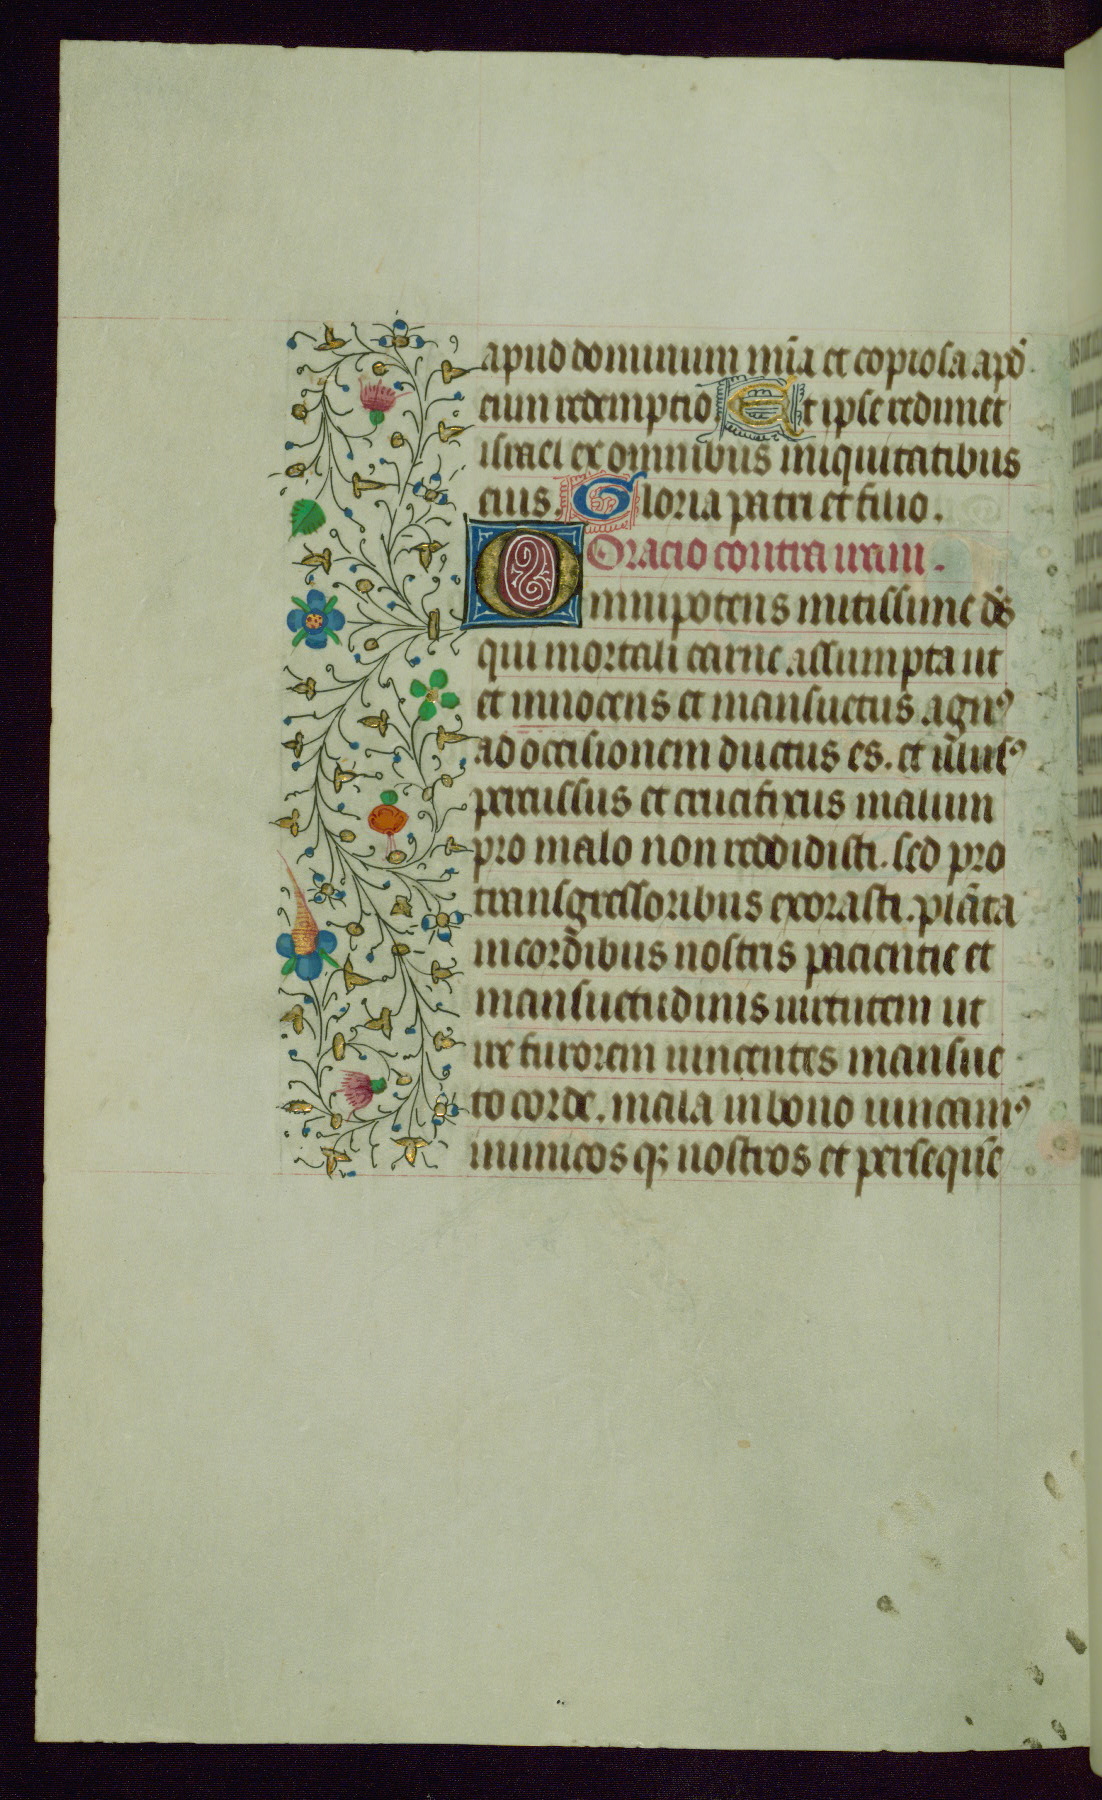 apud dominum mīa et copiosa apd̄
eum redemptio. Et ipse redimet
israel ex omnibus iniquitatibus
eius. Gloria patri et filio.
Oracio contra iram.
Omnipotens mitissime ds̄
qui mortali carne assumpta ut
et innocens et mansuetus agnꝰ
ad occisionem ductus es. et
percussus et crucifixus malum
pro malo non reddidisti. sed pro
transgressoribus exorasti. plāta
in cordibus nostris paciencie et
mansuetudinis uirtutem ut
ire furorem uincentes mansue
to corde. mala in bono uincamꝰ
inimicos qꝫ nostros et persequē